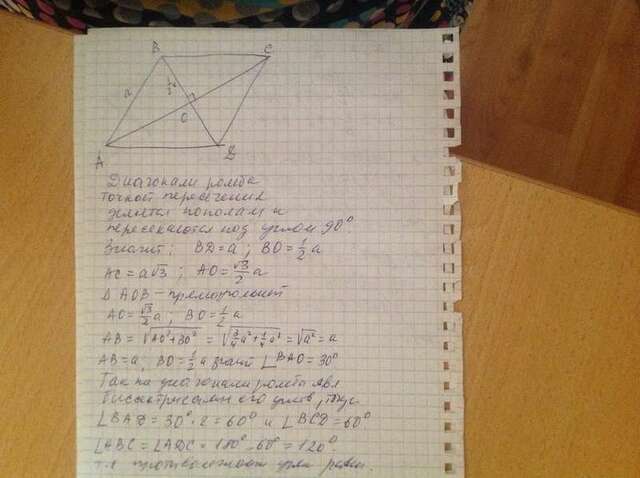 A
B
C
D
O
a
½a
Диагонали ромба
точкой пересечения
делятся пополам и
пересекаются под углом 90°.
Значит; BD = a; BO = 1/2 a
AC = a√3; AO = √3/2 a
Δ AOB - прямоугольный
AO = √3/2 a; BO = 1/2 a
AB = √AO²+BO² = √3/4 a² + 1/4 a² = √a² = a
AB = a; BO = 1/2 a значит ∠BAO = 30°
Так как диагонали ромба явл
биссектрисами его углов, то
∠BAD = 30°·2 = 60° и ∠BCD = 60°
∠ABC = ∠ADC = 180°-60° = 120°
т.к. противолежащие углы равны.